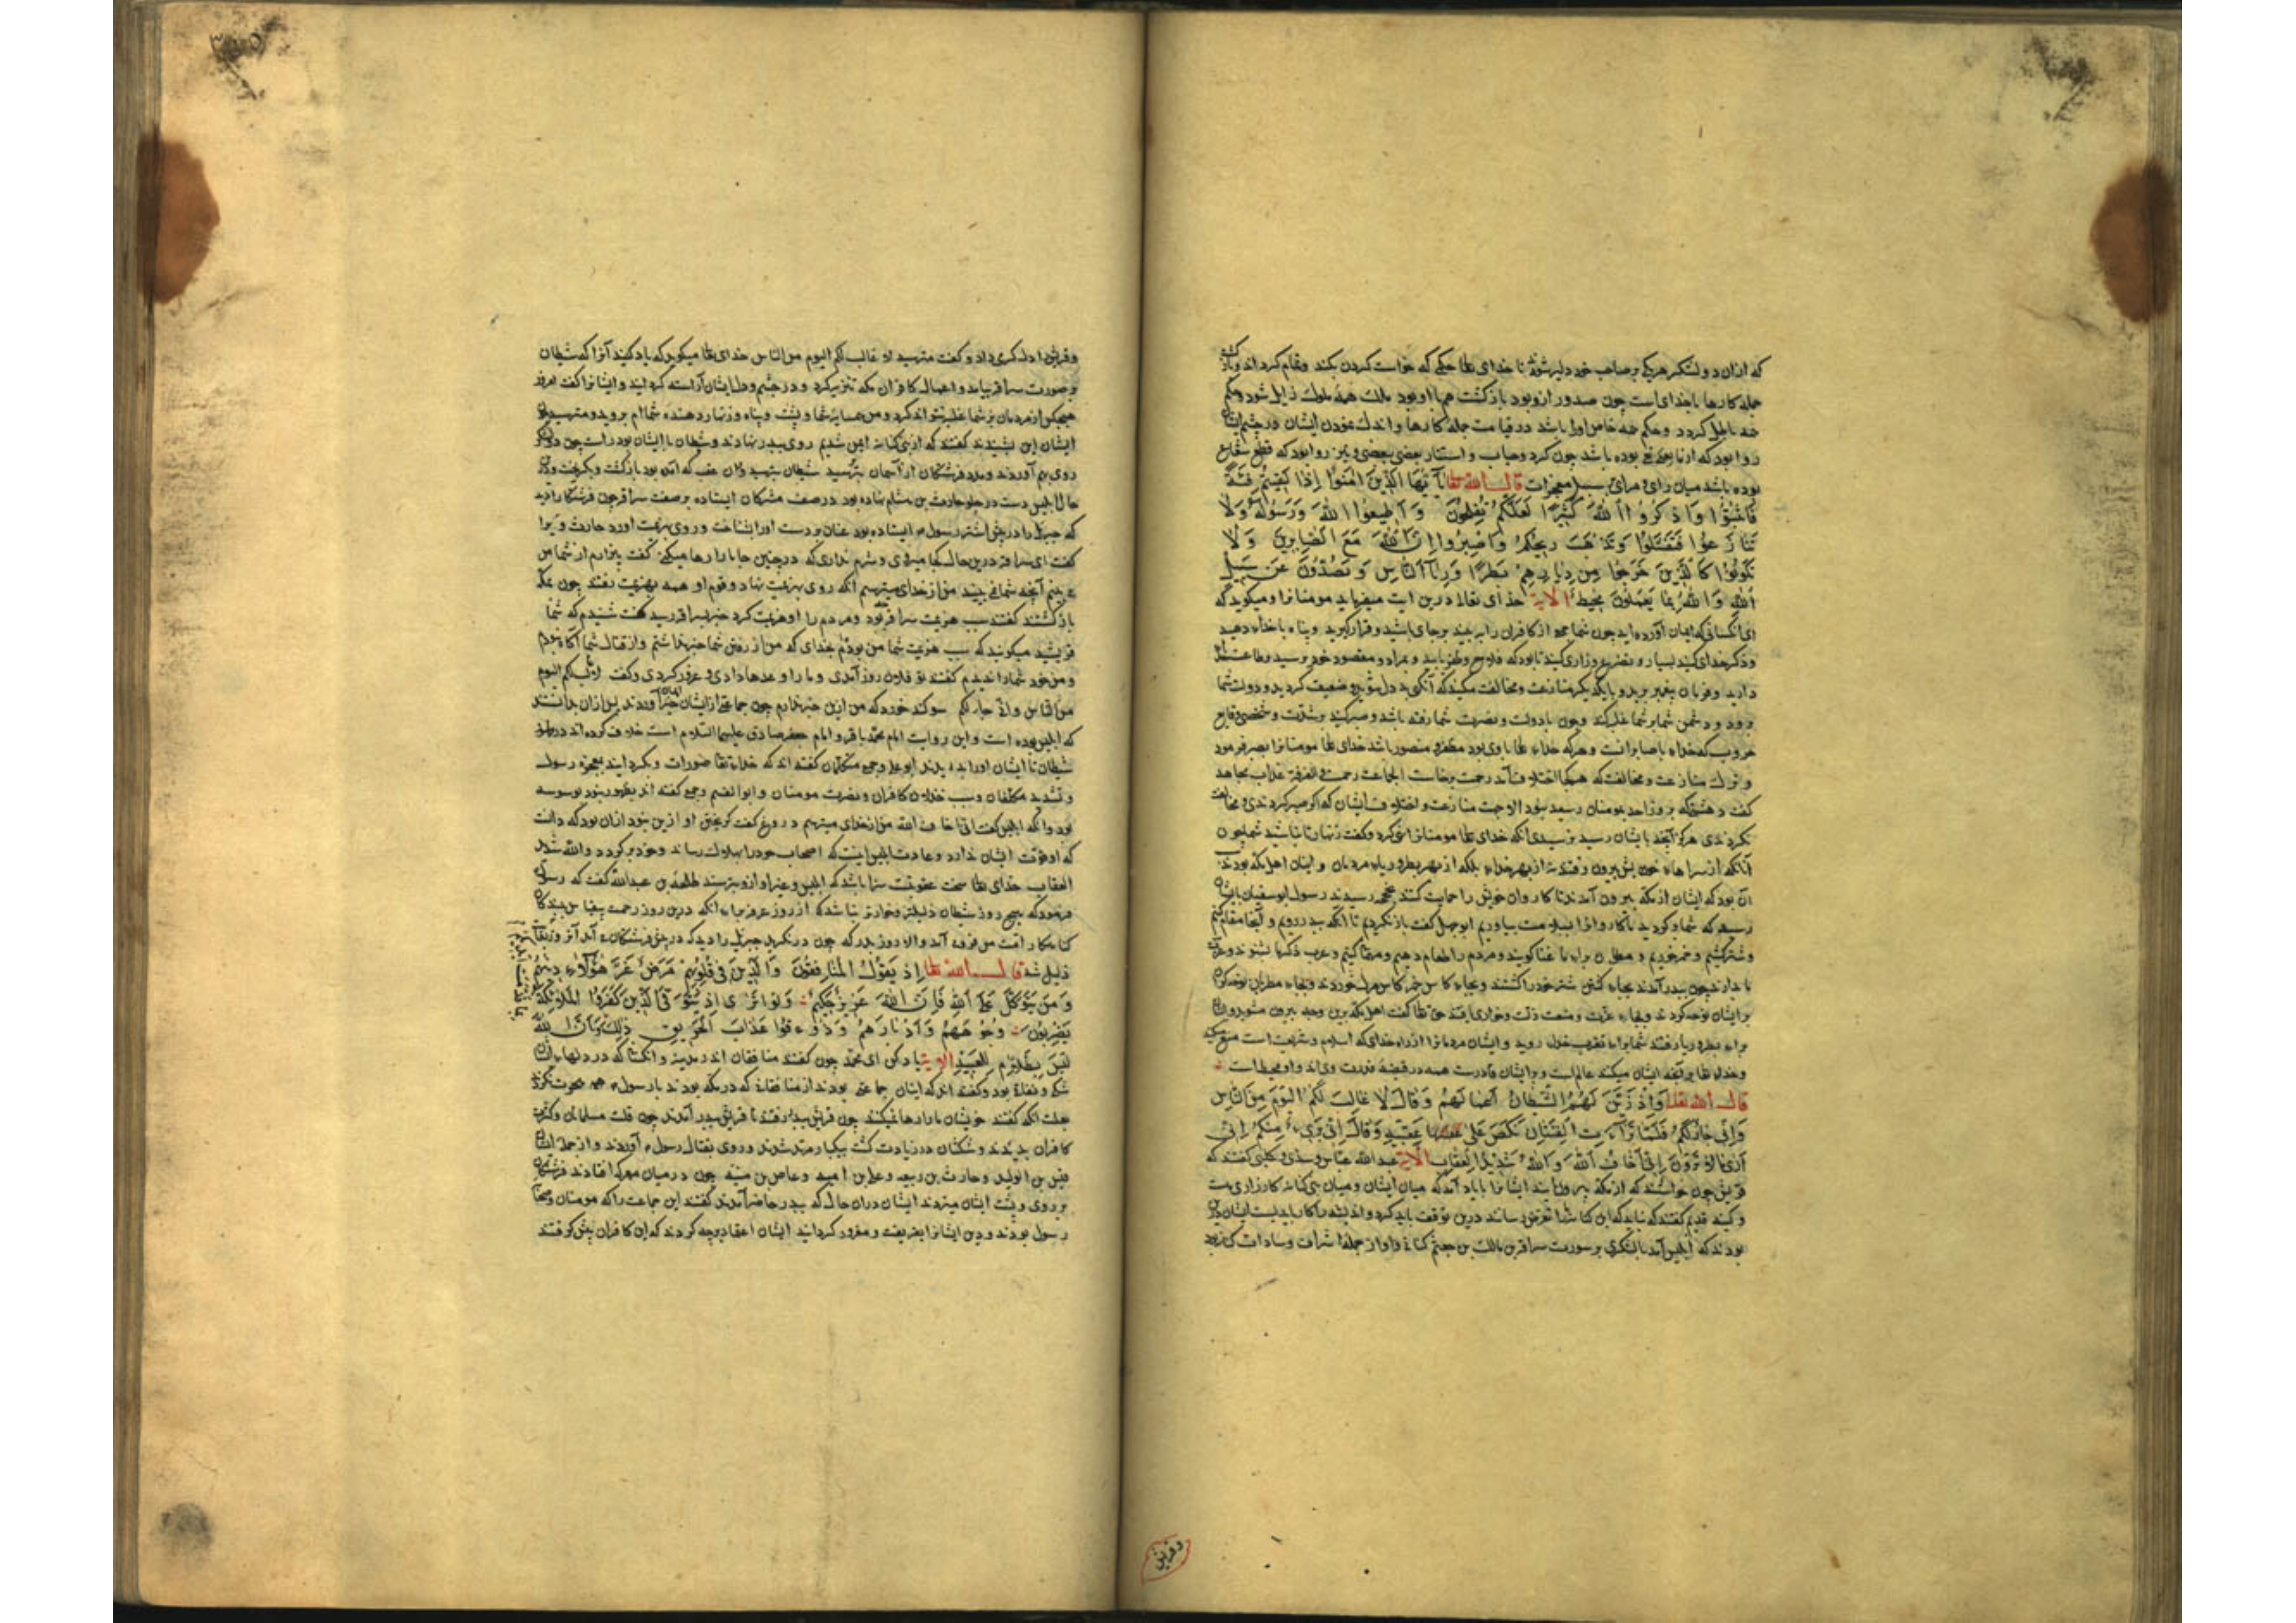 که ازان دو لشکر هریکی بر صاحب خود دلیر شوند تا خدای تعا حکمی که خواست کردن بکند و تمام کرداند و بازکشت
جمله کارها باخدای است چون صدور ازو بود بازکشت هم با او بود ملک همه ملوک زایل شود و حکم
همه باطل کردد و حکم همه خاص او را باشد در قیامت جمله کارها و اندک نمودن ایشان در چشم ایشان
روا بود که بوده باشد چون کرد و حجاب و استتار بعضی ببعضی و نیز روا بود که قطع شعاع
بوده باشد میان رای و مرای بر سبیل معجزات قال الله تعا یا ایها الذین امنوا اذا لقیتم فئة
فاثبتوا واذکروا الله کثیرا لعلکم تفلحون واطیعوا الله ورسوله ولا
تنازعوا فتفشلوا وتذهب ریحکم واصبروا ان الله مع الصابرین ولا
تکونوا کالذین خرجوا من دیارهم بطرا ورئاء الناس ویصدون عن سبیل
الله والله بما یعملون محیط الایة خدای تعالی درین ایت میفرماید مومنانرا و میکوید که
ای آنکسانی که ایمان آورده اید چون شما جمعی از کافران را به بینید برجای باشید و قرار کیرید و پناه باخدا دهید
و ذکر خدای کنید بسیار و تضرع و زاری کنید تا بود که فلاح و ظفر یابید و بمراد و مقصود خود برسید و طاعت خدا
دارید و فرمان پیغمبر برید و با یکدیکر منازعت و مخالفت مکنید که آنکه بددل شوید و ضعیف کردید و دولت شما
برود و دشمن شما بر شما غلبه کند و چون بادولت و نصرت شما رفته باشد و صبر کنید بر شدت و سختی وقایع
حروب که خدا باصابرانست و هرکه خدا تعا باوی بود مظفر و منصور باشد خدای تعا مومنانرا بصبر فرمود
و ترک منازعت و مخالفت که هیچکا اختلاف آمد رحمت برخاست الجماعت رحمة و الفرقة عذاب مجاهد
کفت که روز احد بمومنان رسید نبود الا جهت منازعت و اختلاف ایشان که اکر صبر کردندی و مخالفت
نکردندی هرکز آنچه بایشان رسید نرسیدی آنکه خدای تعا مومنانرا نهی کرد و کفت زنهار تا نباشید شما چون
آنانکه از سراهای خویش بیرون رفتند نه از بهر خدا بلکه از بهر بطر و ریاء مردمان و ایشان اهل مکه بودند
آن بود که ایشان از مکه بیرون آمدند تا کاروان خویش را حمایت کنند بجحفه رسیدند رسول ابوسفیان بایشان
رسید که شما برکردید تا کاروانرا بسلامت بیاوریم ابوجهل کفت باز نکردیم تا آنکه ببدر رویم و آنجا مقام کنیم
و شتر کشیم و خمر خوریم و مطربان برای ما غنا کویند و مردم را طعام دهیم و مهمانی کنیم و عرب ذکر ما بشنوند و
تا چون ببدر آمدند بجای کشتن شتر خود را کشتند و بجای کاس خمر کاس مرک خوردند و بجای مطربان نوحه کران
بر ایشان نوحه کردند و بجای عزت و منعت ذلت و خواری افتد حق تعا کفت اهل مکه برین وجه بیرون مشوید و از
برای بطر و ریا رفتند شما برای تقرب خدا روید و ایشان مردمانرا از راه خدای که اسلام و شریعت است منع میکنند
و خدای تعا بر آنچه ایشان میکنند عالم است و بر ایشان قادرست همه در قبضه قدرت وی اند و او محیط است
قال الله تعا واذ زین لهم الشیطان اعمالهم وقال لا غالب لکم الیوم من الناس
وانی جار لکم فلما تراءت الفئتان نکص علی عقبیه وقال انی بریء منکم انی
اری ما لا ترون انی اخاف الله والله شدید العقاب الایة عبدالله عباس و سدی و کلبی کفتند که
قریش چون خواستند که از مکه بیرون آیند ایشانرا باد آمد که میان ایشان و میان بنی کنانه کارزاری هست
و کینه قدیم کفتند که نباید که این کنانه شما را تعرض رسانند درین توقف باید کرد و اندیشه با کار باید بست ایشان درین
بودند که ابلیس آمد با لشکری بر صورت سراقة بن مالک بن جعشم کنانی و او از جمله اشراف و سادات کنانه بود
وقریش
وقریش را دلداری داد و کفت مترسید لا غالب لکم الیوم من الناس خدای تعا میکوید که یاد کنید آنرا که شیطان
بر صورت سراقه بیامد و اعمال کافران مکه تزیین کرد و در چشم و دل ایشان آراسته کردانید و ایشانرا کفت امروز
هیچکس از مردمان بر شما غلبه نتواند کرد و من همسایه شما و پشت و پناه و زنهار دهنده شما ام بروید و مترسید
ایشان این بشنیدند کفتند که از بنی کنانه ایمن شدیم روی ببدر نهادند و شیطان با ایشان بود راست چون دو لشکر
روی بهم آوردند و مدد فرشتکان از آسمان برسید شیطان بترسید و ازان عقب که آمده بود بازکشت و بکریخت و دران
حال ابلیس دست در حارث بن هشام نهاده بود در صف مشرکان ایستاده بر صفت سراقه چون فرشتکانرا دید
که جبرئیل را در پیش اشتر رسول ایستاده بود عنان بر دست او را بشناخت و روی بهزیمت اورد حارث ویرا
کفت ای سراقه درین حال کجا میروی و شرم نداری که درچنین جا ما را رها میکنی کفت بیزارم از شما من
می بینم آنچه شما نمی بینید من از خدای میترسم آنکه روی بهزیمت نهاد و قوم او همه بهزیمت رفتند چون بمکه
بازکشتند کفتند سبب هزیمت سراقه بود و مردم را او هزیمت کرد خبر بسراقه رسید کفت شنیدم که شما
قریشید میکویند که سبب هزیمت شما من بودم بخدای که من از رفتن شما خبر نداشتم و از قتال شما آکاه نبودم
و من خود شما را ندیدم کفتند تو فلان روز آمدی و ما را وعدها دادی و غرور کردی و کفتی لا غالب لکم الیوم
من الناس وانی جار لکم سوکند خورد که من ازین خبر ندارم چون جماعتی از ایشان ایمان آوردند پس ازان بدانستند
که ابلیس بوده است و این روایت امام محمد باقر و امام جعفر صادق علیهما السلام است خلاف کرده اند در ظهور
شیطان تا ایشان او را بدیدند ابوعلی و جمعی متکلمان کفته اند که خدا تعا صورت او بکردانید بمعجزه رسول
و تشدید مکلفان و سبب خذلان کافران و نصرت مومنان و ابوالقسم و جمعی کفته اند بظهور نبود بوسوسه
بود و آنکه ابلیس کفت انی اخاف الله من از خدای میترسم دروغ کفت کریختن او ازین خود ازان بود که دانست
که او قوت ایشان ندارد و عادت ابلیس اینست که اصحاب خود را بهلاک رساند و خود برکردد والله شدید
العقاب خدای تعا سخت عقوبت سزا باشد که ابلیس و غیر او ازو بترسند طلحة بن عبدالله کفت که رسول
فرمود که هیچ روز شیطان ذلیلتر و خوارتر نباشد که از روز عرفه برای آنکه درین روز رحمت بقیاس بر بندکان
کناهکار امت من فرود آید والا روز بدر که چون در نکرید جبرئیل را دید که در پیش فرشتکان می آمد آن روز
ذلیل شد قال الله تعا اذ یقول المنافقون والذین فی قلوبهم مرض غر هؤلاء دینهم
ومن یتوکل علی الله فان الله عزیز حکیم ولو تری اذ یتوفی الذین کفروا الملائکة
یضربون وجوههم وادبارهم وذوقوا عذاب الحریق ذلک بما وان الله
لیس بظلام للعبید الایة یاد کن ای محمد چون کفتند منافقان اندر مدینه و آنکسانی که در دلهای ایشان
شک و نفاق بود و کفته اند که ایشان جماعتی بودند از منافقان که در مکه بودند با رسول هجرت نکردند
بعلت آنکه کفتند خویشان ما را رها نمیکنند چون قریش ببدر رفتند با قریش ببدر آمدند چون قلت مسلمانان و کثرت
کافران بدیدند و شکشان در زیادت کشت بیکبار مرتد شدند و روی بقتال رسول آوردند و از جمله ایشان
قیس بن الولید و حارث بن ربیعه و علی بن امیه و عاص بن منبه چون درمیان معرکه افتادند فرشتکان
بر روی و پشت ایشان میزدند ایشان دران حال که ببدر حاضر آمدند کفتند این جماعت را که مومنان و صحابه
رسول بودند و دین ایشانرا بفریفت و مغرور کردانید ایشان اعتقاد بوجه کردند که این کافران پیش کرفتند